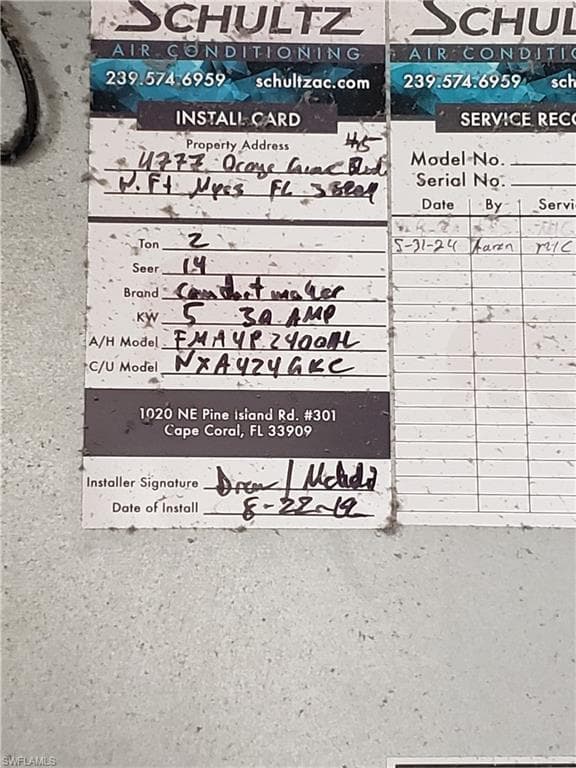 SCHULTZ
AIR CONDITIONING
239.574.6959 schultzac.com
INSTALL CARD
Property Address #5
4777 Orange Grove Blvd
N. Ft Myers FL
Ton 2
Seer 14
Brand
KW 5 30 AMP
A/H Model FMA4P2400AL
C/U Model NXA424GKC
1020 NE Pine Island Rd. #301
Cape Coral, FL 33909
Installer Signature Drew /
Date of Install 8-22-19
SCHUL
AIR CONDITIO
239.574.6959 sch
SERVICE RECO
Model No.
Serial No.
Date By Servi
5-31-24 Aaron M/C
SWFLAMLS